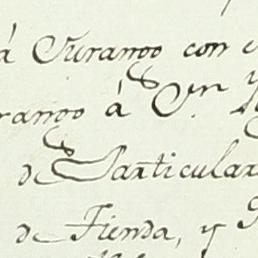 á Durango con
rango á Dn
de Particular
de Tienda, y